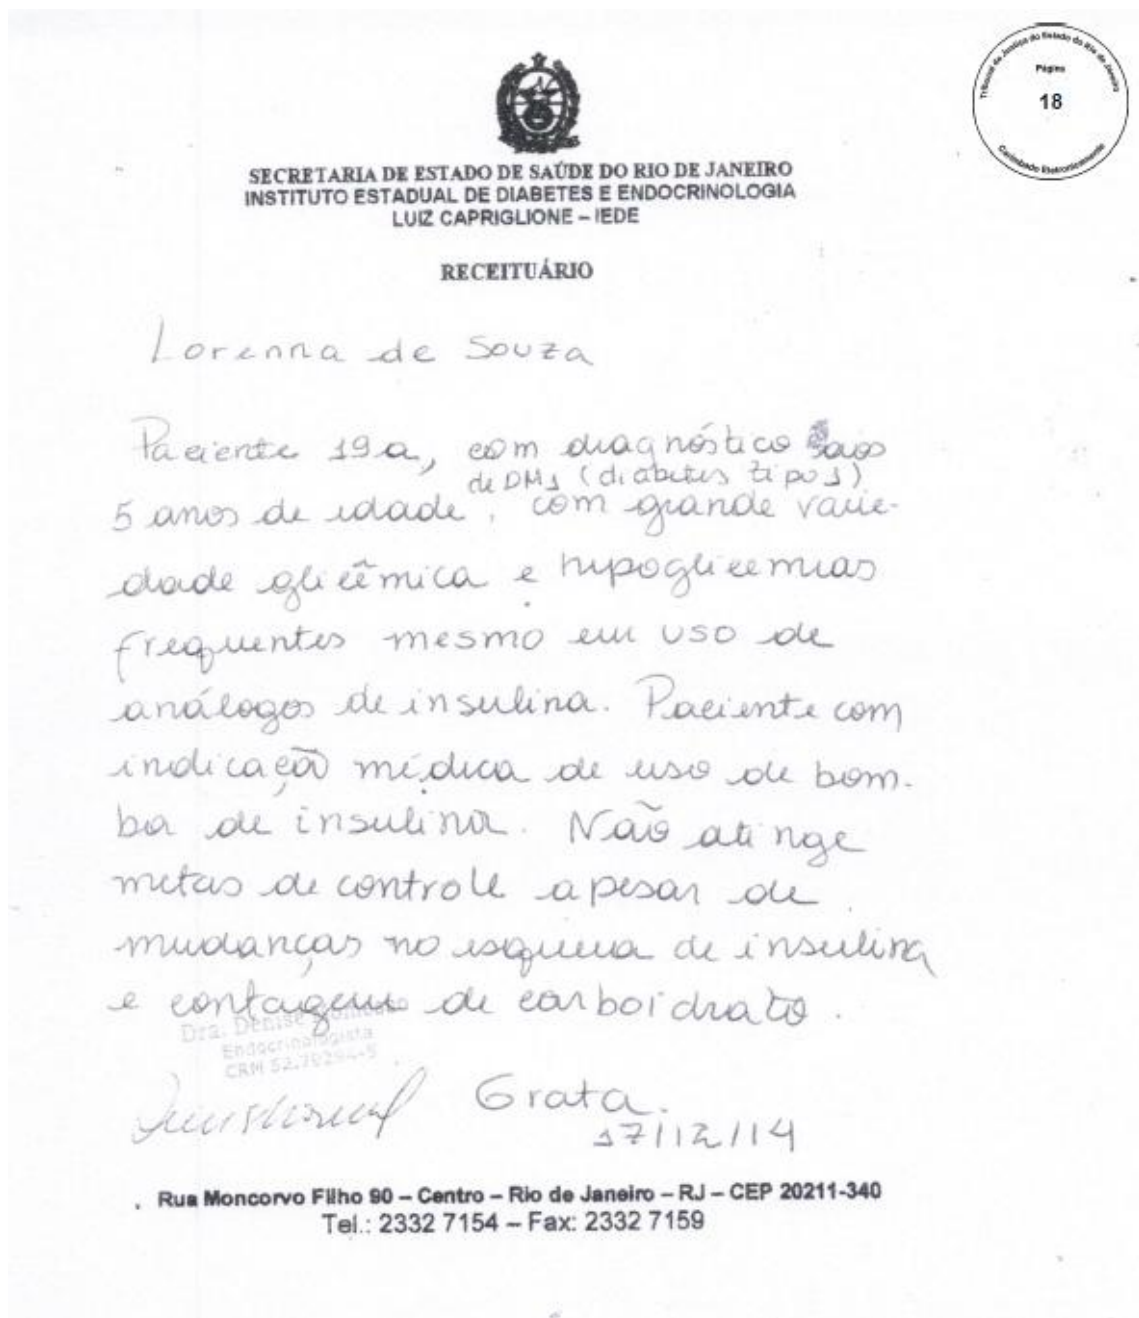 Tribunal de Justiça do Estado do Rio de Janeiro
Página
18
Carimbado Eletronicamente
SECRETARIA DE ESTADO DE SAÚDE DO RIO DE JANEIRO
INSTITUTO ESTADUAL DE DIABETES E ENDOCRINOLOGIA
LUIZ CAPRIGLIONE – IEDE
RECEITUÁRIO
Lorenna de Souza
Paciente 19a, com diagnóstico aos
de DM1 (diabetes tipo 1)
5 anos de idade, com grande varie-
dade glicêmica e hipoglicemias
frequentes mesmo em uso de
análogos de insulina. Paciente com
indicação médica de uso de bom-
ba de insulina. Não atinge
metas de controle apesar de
mudanças no esquema de insulina
e contagem de carboidrato.
Dra. Denise
Endocrinologista
CRM
Grata.
17/12/14
Rua Moncorvo Filho 90 – Centro – Rio de Janeiro – RJ – CEP 20211-340
Tel.: 2332 7154 – Fax: 2332 7159